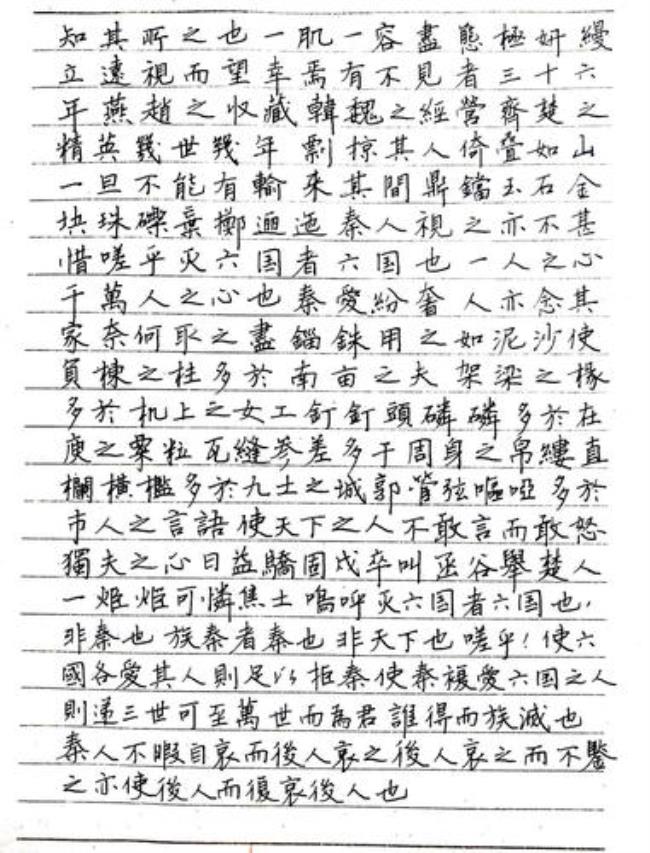 知其所之也一肌一容盡態極妍縵
立遠視而望幸焉有不見者三十六
年燕趙之收藏韓魏之經營齊楚之
精英幾世幾年剽掠其人倚叠如山
一旦不能有輸來其間鼎鐺玉石金
块珠礫棄擲邐迤秦人視之亦不甚
惜嗟乎灭六国者六国也一人之心
千萬人之心也秦愛紛奢人亦念其
家奈何取之盡錙銖用之如泥沙使
負棟之柱多於南亩之夫架梁之椽
多於机上之女工釘釘頭磷磷多於在
庾之粟粒瓦縫參差多于周身之帛縷直
欄橫檻多於九土之城郭管弦嘔啞多於
市人之言語使天下之人不敢言而敢怒
獨夫之心日益驕固戍卒叫函谷舉楚人
一炬炬可憐焦土嗚呼灭六国者六国也,
非秦也族秦者秦也非天下也嗟乎!使六
國各愛其人則足以拒秦使秦複愛六国之人
則递三世可至萬世而為君誰得而族滅也
秦人不暇自哀而後人哀之後人哀之而不鑒
之亦使後人而復哀後人也